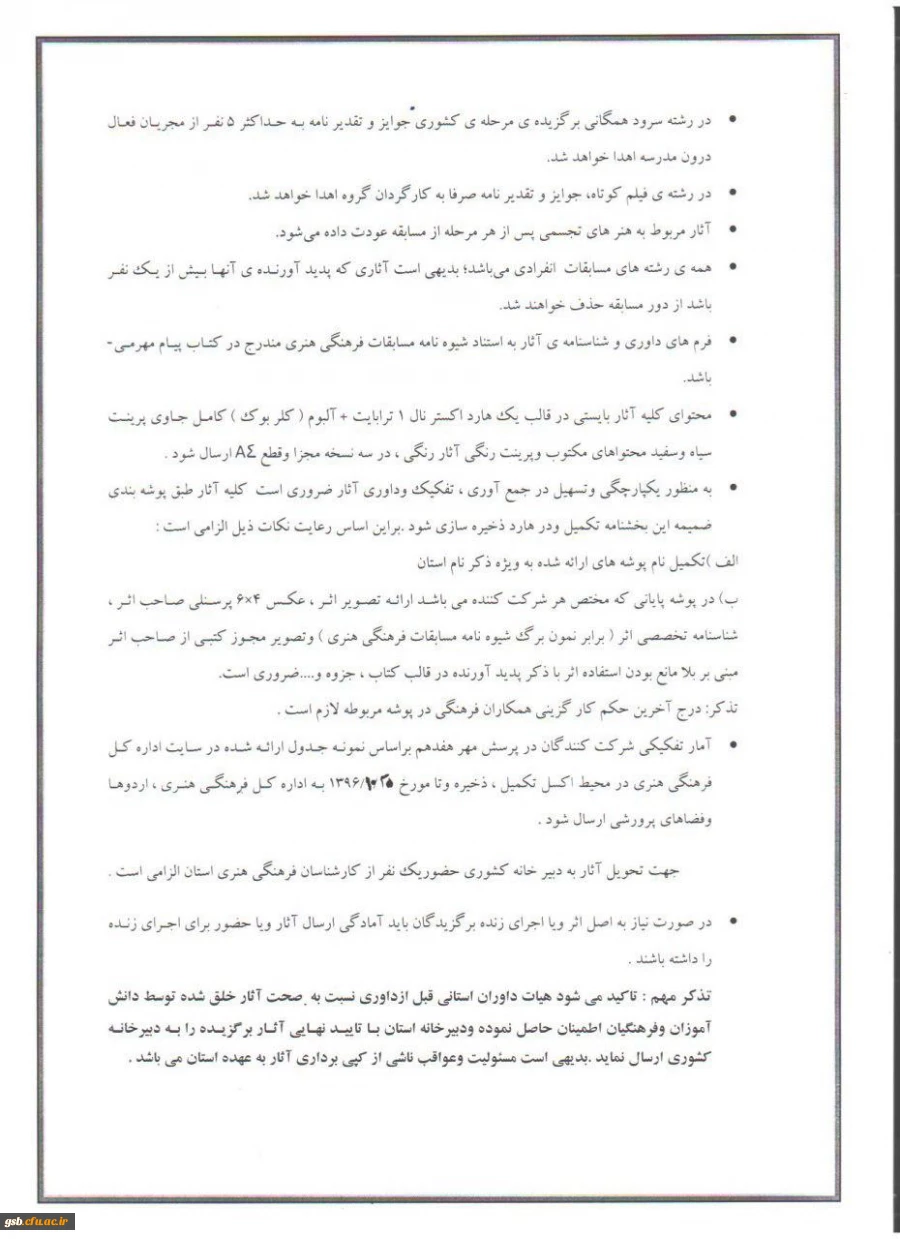 • در رشته سرود همگانی برگزیده ی مرحله ی کشوری جوایز و تقدیر نامه به حداکثر ۵ نفر از مجریان فعال
درون مدرسه اهدا خواهد شد.
• در رشته ی فیلم کوتاه، جوایز و تقدیر نامه صرفا به کارگردان گروه اهدا خواهد شد.
• آثار مربوط به هنر های تجسمی پس از هر مرحله از مسابقه عودت داده می‌شود.
• همه ی رشته های مسابقات انفرادی می‌باشد؛ بدیهی است آثاری که پدید آورنده ی آنها بیش از یک نفر
باشد از دور مسابقه حذف خواهند شد.
• فرم های داوری و شناسنامه ی آثار به استناد شیوه نامه مسابقات فرهنگی هنری مندرج در کتاب پیام مهرمی-
باشد.
• محتوای کلیه آثار بایستی در قالب یک هارد اکستر نال ۱ ترابایت + آلبوم ( کلر بوک ) کامل حاوی پرینت
سیاه وسفید محتواهای مکتوب وپرینت رنگی آثار رنگی ، در سه نسخه مجزا وقطع A٤ ارسال شود .
• به منظور یکپارچگی وتسهیل در جمع آوری ، تفکیک وداوری آثار ضروری است کلیه آثار طبق پوشه بندی
ضمیمه این بخشنامه تکمیل ودر هارد ذخیره سازی شود .براین اساس رعایت نکات ذیل الزامی است :
الف )تکمیل نام پوشه های ارائه شده به ویژه ذکر نام استان
ب) در پوشه پایانی که مختص هر شرکت کننده می باشد ارائه تصویر اثر ، عکس ۴×۶ پرسنلی صاحب اثر ،
شناسنامه تخصصی اثر ( برابر نمون برگ شیوه نامه مسابقات فرهنگی هنری ) وتصویر مجوز کتبی از صاحب اثر
مبنی بر بلا مانع بودن استفاده اثر با ذکر پدید آورنده در قالب کتاب ، جزوه و....ضروری است.
تذکر: درج آخرین حکم کار گزینی همکاران فرهنگی در پوشه مربوطه لازم است .
• آمار تفکیکی شرکت کنندگان در پرسش مهر هفدهم براساس نمونه جدول ارائه شده در سایت اداره کل
فرهنگی هنری در محیط اکسل تکمیل ، ذخیره وتا مورخ ۱۳۹۶/ به اداره کل فرهنگی هنری ، اردوها
وفضاهای پرورشی ارسال شود .
جهت تحویل آثار به دبیر خانه کشوری حضوریک نفر از کارشناسان فرهنگی هنری استان الزامی است .
• در صورت نیاز به اصل اثر ویا اجرای زنده برگزیدگان باید آمادگی ارسال آثار ویا حضور برای اجرای زنده
را داشته باشند .
تذکر مهم : تاکید می شود هیات داوران استانی قبل ازداوری نسبت به صحت آثار خلق شده توسط دانش
آموزان وفرهنگیان اطمینان حاصل نموده ودبیرخانه استان با تایید نهایی آثار برگزیده را به دبیرخانه
کشوری ارسال نماید .بدیهی است مسئولیت وعواقب ناشی از کپی برداری آثار به عهده استان می باشد .
gsb.cfu.ac.ir